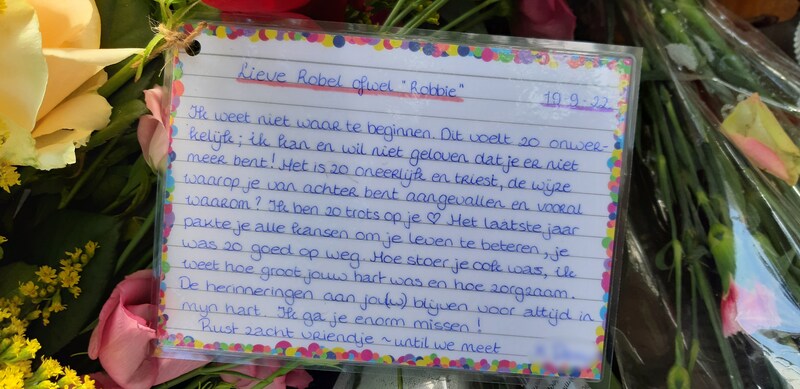 Lieve Robel ofwel "Robbie"
19-9-22
Ik weet niet waar te beginnen. Dit voelt zo onwer-
kelijk; ik kan en wil niet geloven dat je er niet
meer bent! Het is zo oneerlijk en triest, de wijze
waarop je van achter bent aangevallen en vooral
waarom? Ik ben zo trots op je ♡ Het laatste jaar
pakte je alle kansen om je leven te beteren, je
was zo goed op weg. Hoe stoer je ook was, ik
weet hoe groot jouw hart was en hoe zorgzaam.
De herinneringen aan jou(w) blijven voor altijd in
mijn hart. Ik ga je enorm missen!
Rust zacht vriendje ~ until we meet